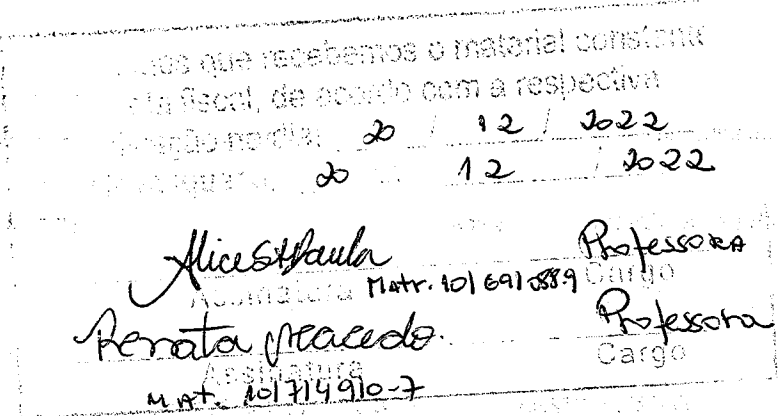 que recebemos o material constante
fiscal, de acordo com a respectiva
no dia 20 / 12 / 2022
20 12 / 2022
Professora
Assinatura Matr. 10/69/088.9 Cargo
Renata Macedo. Professora
Assinatura Cargo
MAt. 10/714910-7